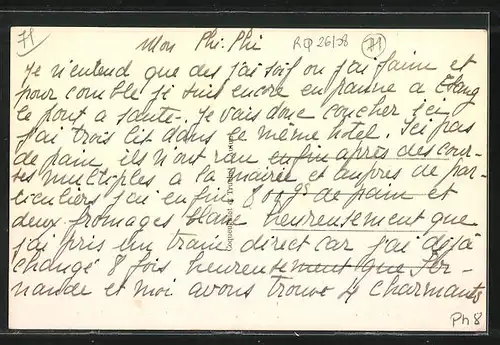 71
Mon Phi-Phi
RΦ 26/38
71
Je n'entend que des j'ai soif ou j'ai faim et
pour comble je suis encre en panne a Etang
le pont a sauté. Je vais donc coucher ici
j'ai trois lit dans le même hôtel. Ici pas
de pain ils n'ont rau enfin après des cour-
ses multiples a la mairie et aupres de par-
ticuliers j'ai enfin 800 gs de pain et
deux fromages blanc heureusement que
j'ai pris un train direct car j'ai déjà
changé 8 fois heureusement que Fer-
nande et moi avons trouvé 4 charmants
Ph 8